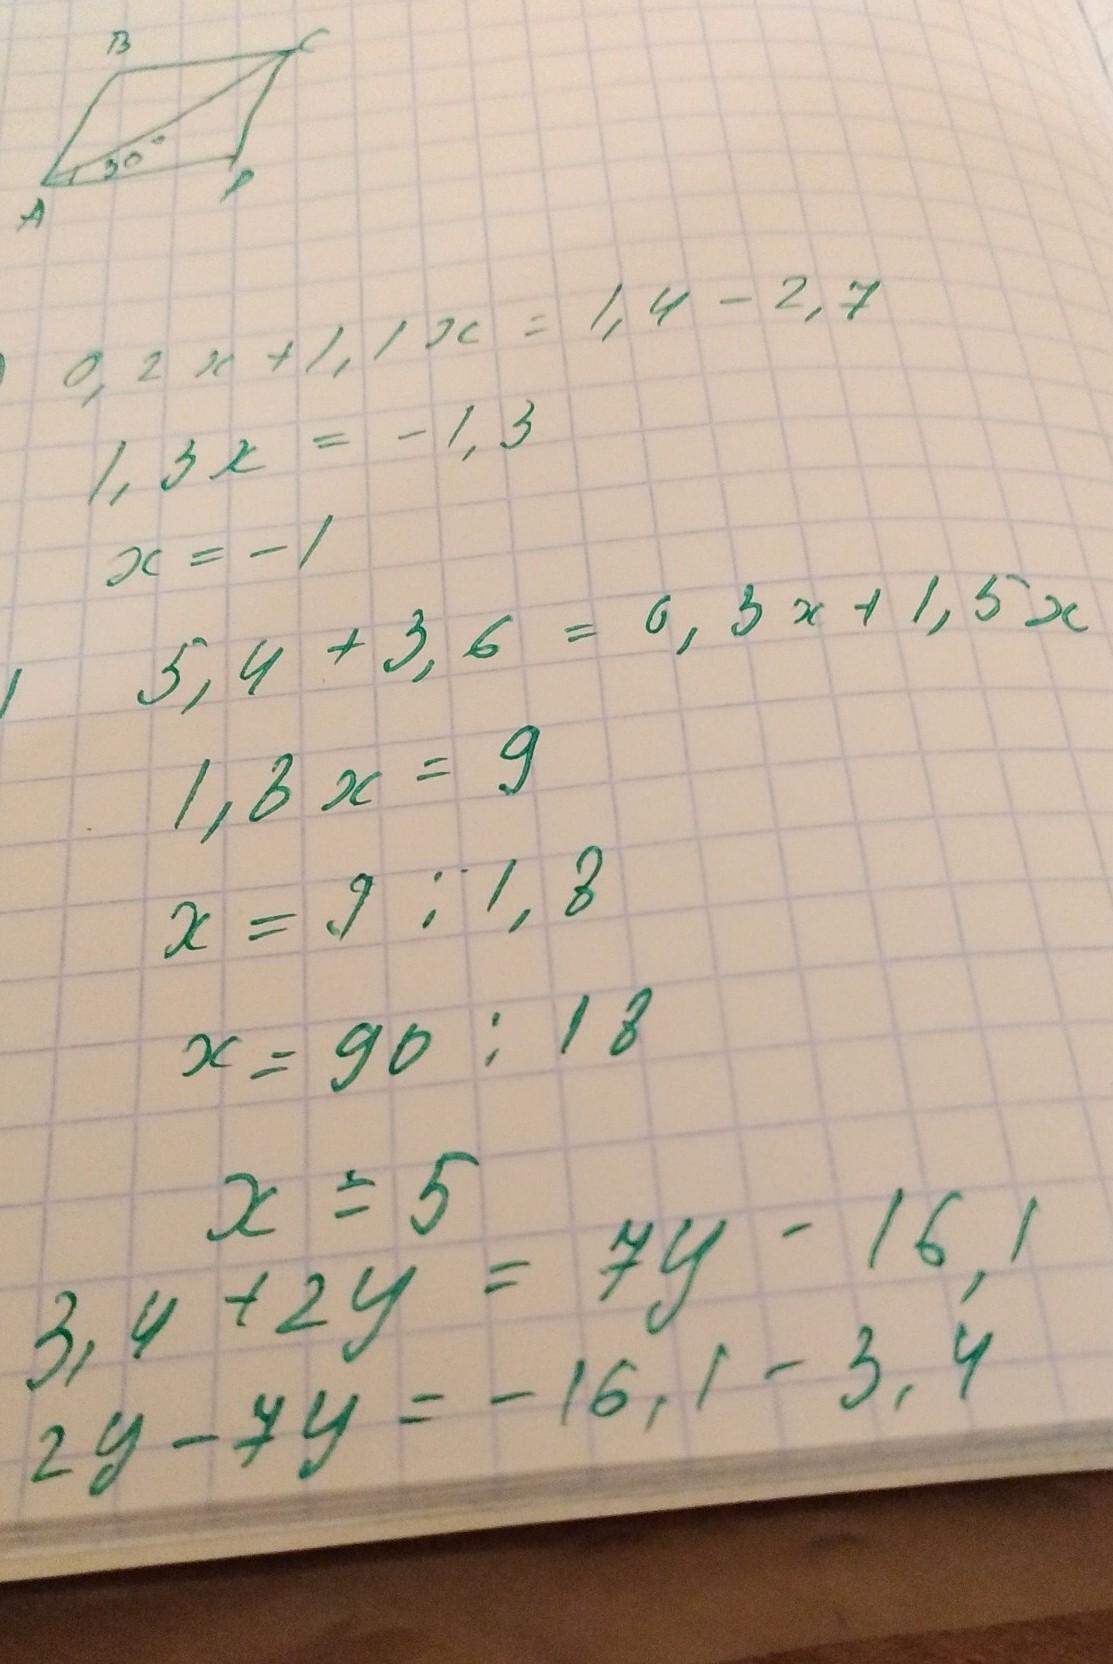 B C
30°
A D
0,2x + 1,1x = 1,4 - 2,7
1,3x = -1,3
x = -1
5,4 + 3,6 = 0,3x + 1,5x
1,8x = 9
x = 9 : 1,8
x = 90 : 18
x = 5
3,4 + 2y = 7y - 16,1
2y - 7y = -16,1 - 3,4